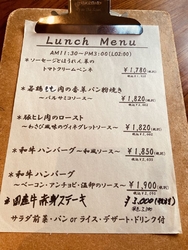 Lunch Menu
AM11:30~PM3:00(LO2:00)
＊ソーセージとほうれん草の
トマトクリームペンネ
¥1,780(税別)
＊若鶏もも肉の香草パン粉焼き
~バルサミコソース~
¥1,820(税別)
＊豚ヒレ肉のロースト
~わさび風味のヴィネグレットソース~
¥1,820(税別)
＊和牛ハンバーグ ~和風ソース~
¥1,850(税別)
＊和牛ハンバーグ
~ベーコン・アンチョビ・温卵のソース~
¥1,900(税別)
＊国産牛赤身ステーキ
¥3,000(税別)
サラダ前菜・パン or ライス・デザート・ドリンク付